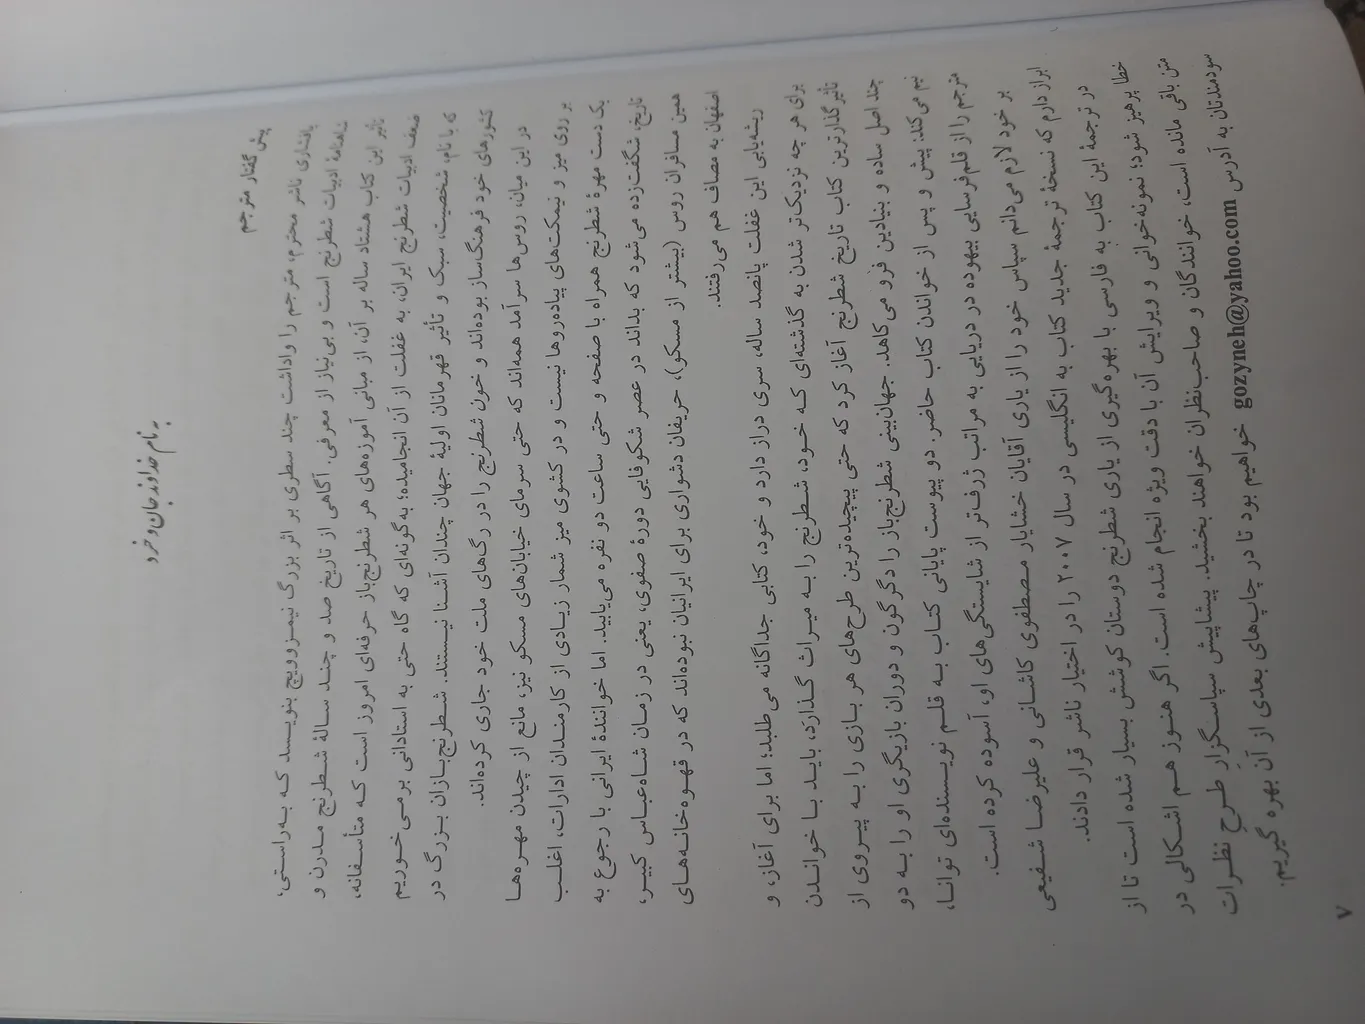 به نام خداوند جان و خرد
پیش گفتار مترجم
پافشاری ناشر محترم، مترجم را واداشت چند سطری بر اثر بزرگ نیمزوویچ بنویسد که به‌راستی،
شاهنامهٔ ادبیات شطرنج است و بی‌نیاز از معرفی. آگاهی از تاریخ صد و چند سالهٔ شطرنج مدرن و
تأثیر این کتاب هشتاد ساله بر آن، از مبانی آموزه‌های هر شطرنج‌باز حرفه‌ای امروز است که متأسفانه،
ضعف ادبیات شطرنج ایران، به غفلت از آن انجامیده؛ به‌گونه‌ای که گاه حتی به استادانی برمی‌خوریم
که با نام، شخصیت، سبک و تأثیر قهرمانان اولیهٔ جهان چندان آشنا نیستند. شطرنج‌بازان بزرگ در
کشورهای خود فرهنگ‌ساز بوده‌اند و خون شطرنج را در رگ‌های ملت خود جاری کرده‌اند.
در این میان، روس‌ها سرآمد همه‌اند که حتی سرمای خیابان‌های مسکو نیز، مانع از چیدن مهره‌ها
بر روی میز و نیمکت‌های پیاده‌روها نیست و در کشوی میز شمار زیادی از کارمندان ادارات، اغلب
یک دست مهرهٔ شطرنج همراه با صفحه و حتی ساعت دو نفره می‌یابید. اما خوانندهٔ ایرانی با رجوع به
تاریخ، شگفت‌زده می‌شود که بداند در عصر شکوفایی دورهٔ صفوی، یعنی در زمان شاه‌عباس کبیر،
همین مسافران روس (بیشتر از مسکو)، حریفان دشواری برای ایرانیان نبوده‌اند که در قهوه‌خانه‌های
اصفهان به مصاف هم می‌رفتند.
ریشه‌یابی این غفلت پانصد ساله، سری دراز دارد و خود، کتابی جداگانه می‌طلبد؛ اما برای آغاز، و
برای هر چه نزدیک‌تر شدن به گذشته‌ای که خود، شطرنج را به میراث گذارَد، باید با خواندن
تأثیرگذارترین کتاب تاریخ شطرنج آغاز کرد که حتی پیچیده‌ترین طرح‌های هر بازی را به پیروی از
چند اصل ساده و بنیادین فرو می‌کاهد. جهان‌بینی شطرنج‌باز را دگرگون و دوران بازیگری او را به دو
نیم می‌کند: پیش و پس از خواندن کتاب حاضر. دو پیوست پایانی کتاب به قلم نویسنده‌ای توانا،
مترجم را از قلم‌فرسایی بیهوده در دریایی به مراتب ژرف‌تر از شایستگی‌های او، آسوده کرده است.
بر خود لازم می‌دانم سپاس خود را از یاری آقایان خشایار مصطفوی کاشانی و علیرضا شفیعی
ابراز دارم که نسخهٔ ترجمهٔ جدید کتاب به انگلیسی در سال ۲۰۰۷ را در اختیار ناشر قرار دادند.
در ترجمهٔ این کتاب به فارسی با بهره‌گیری از یاری شطرنج دوستان کوشش بسیار شده است تا از
خطا پرهیز شود؛ نمونه‌خوانی و ویرایش آن با دقت ویژه انجام شده است. اگر هنوز هم اشکالی در
متن باقی مانده است، خوانندگان و صاحب‌نظران خواهند بخشید. پیشاپیش سپاسگزار طرحِ نظرات
سودمندتان به آدرس gozyneh@yahoo.com خواهیم بود تا در چاپ‌های بعدی از آن بهره گیریم.
۷